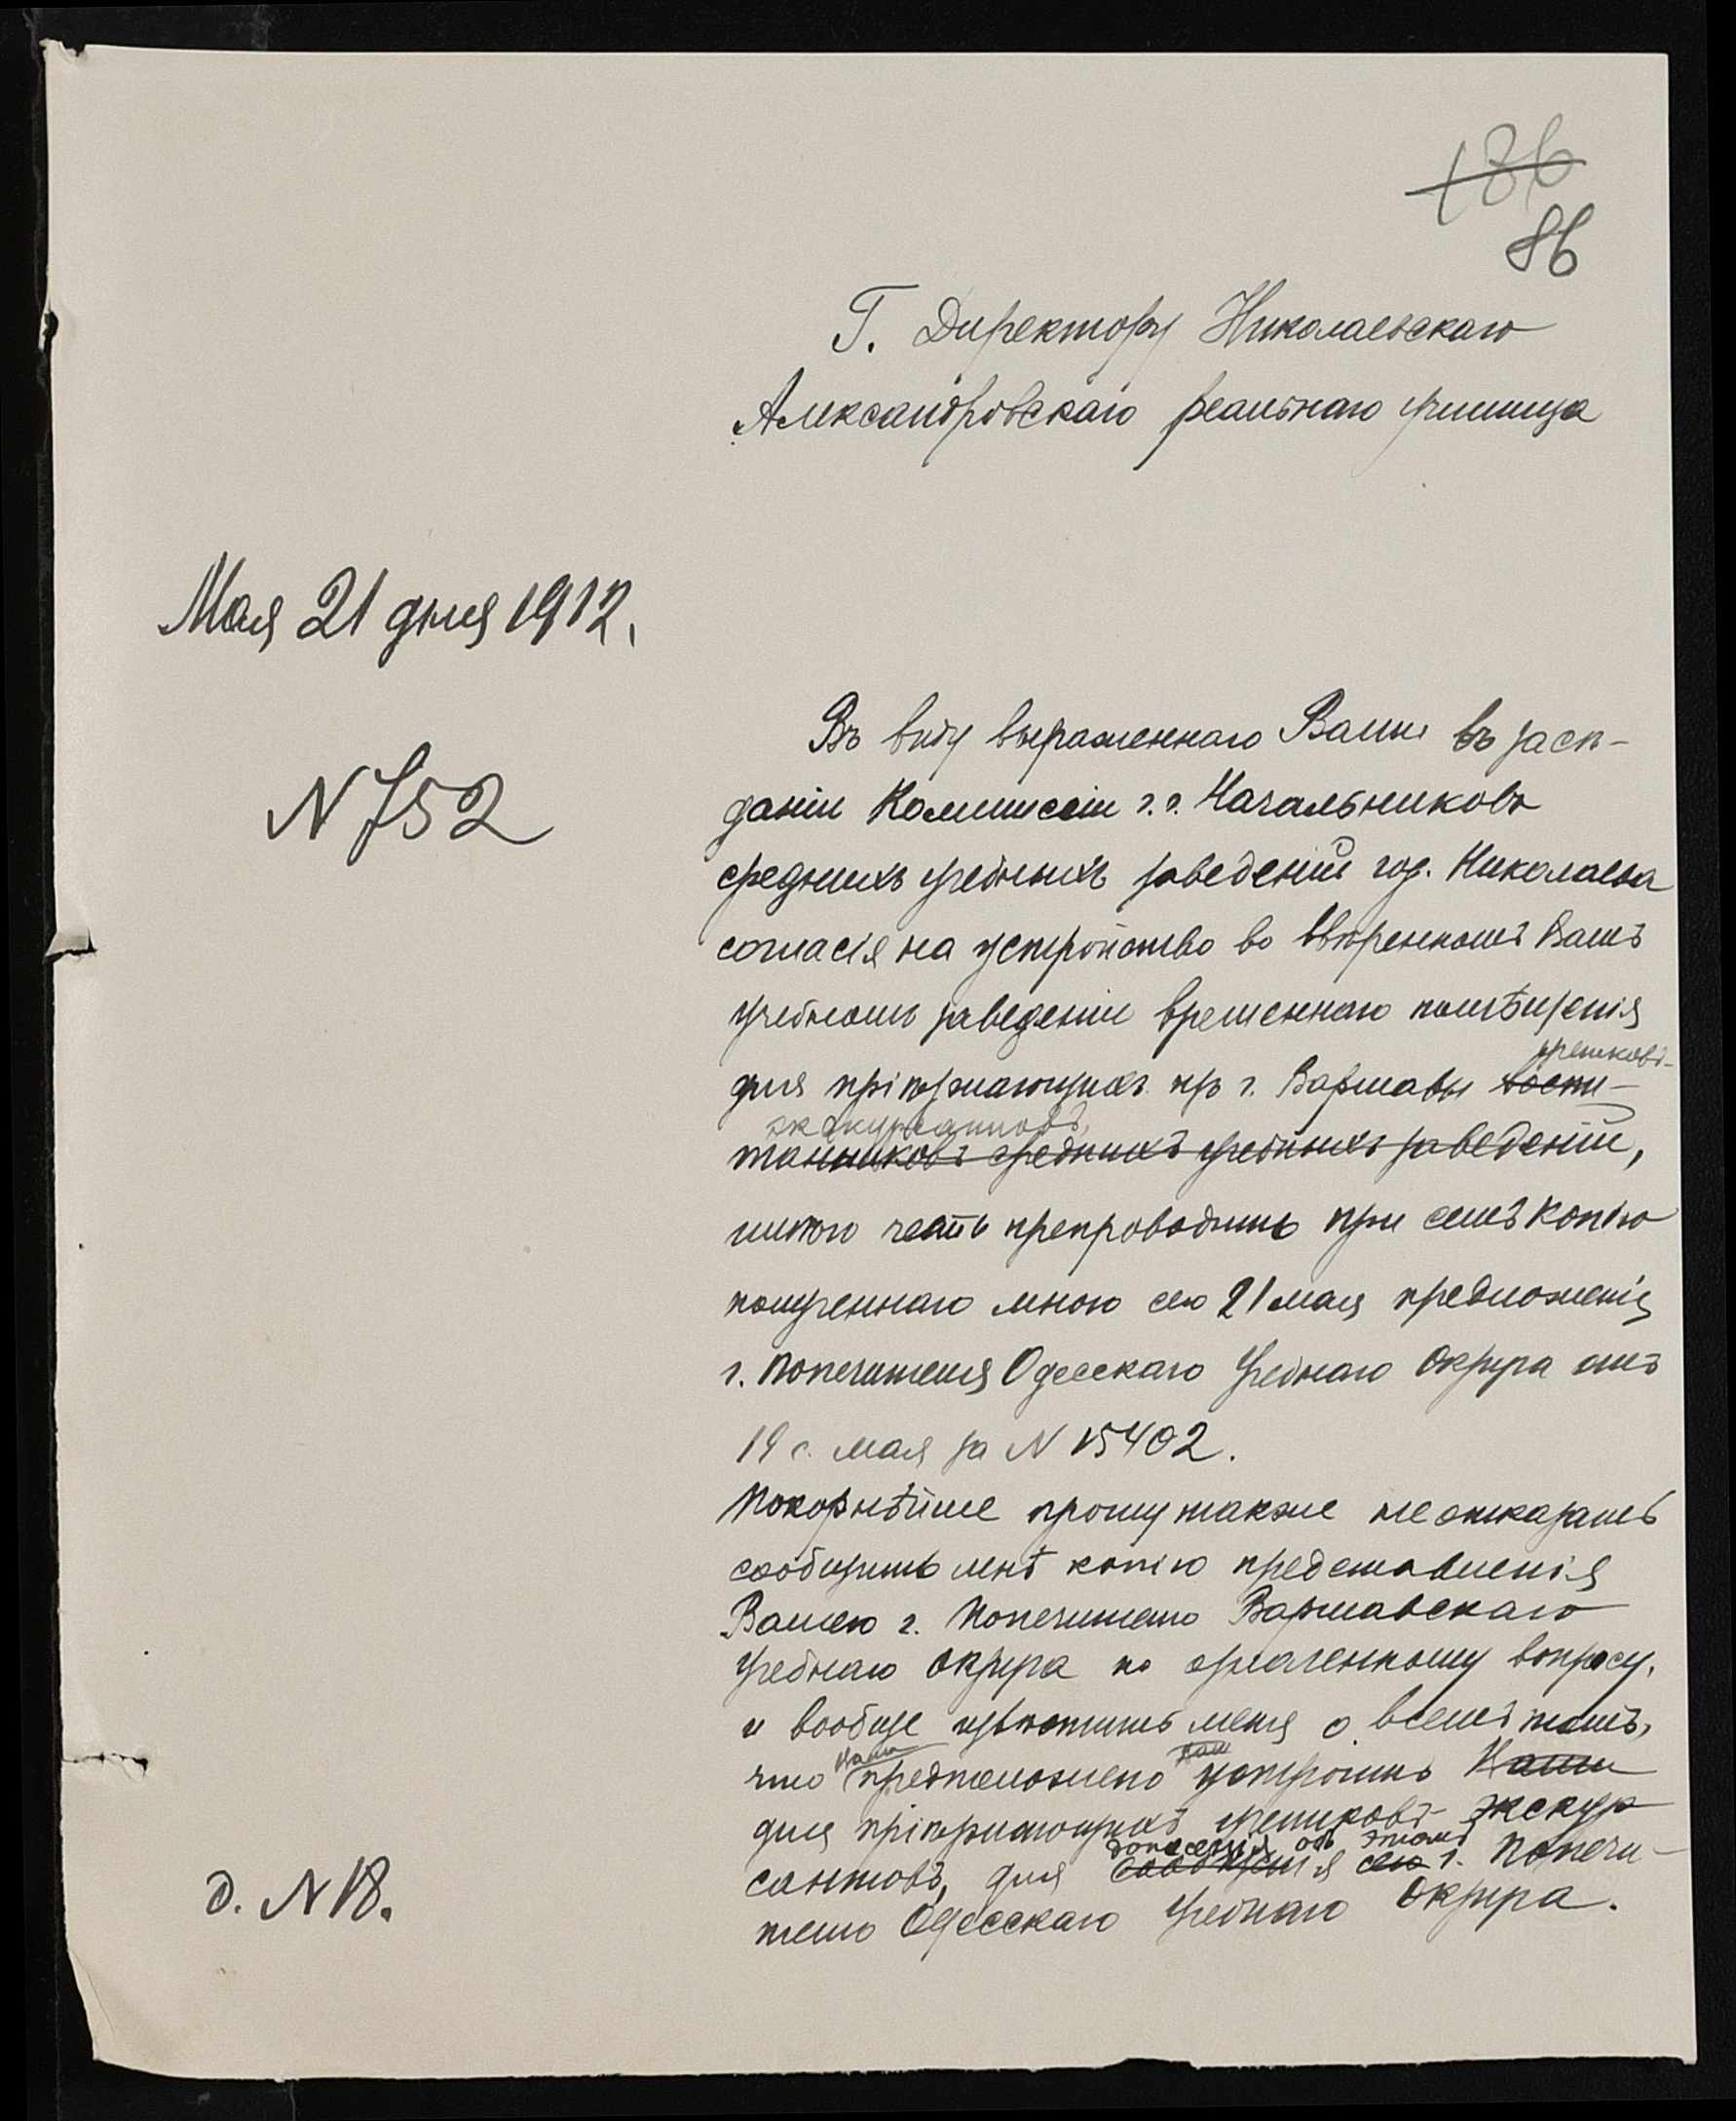 186
86
Г. Директору Николаевскаго
Александровскаго реальнаго училища
Мая 21 дня 1912.
N 752
Въ виду выраженнаго Вами въ засѣ-
даніи Комиссіи г.г. Начальниковъ
среднихъ учебныхъ заведеній гор. Николаева
согласія на устройство во ввѣренномъ Вамъ
учебномъ заведеніи временнаго помѣщенія
учениковъ-
для пріѣзжающихъ изъ г. Варшавы воспи-
экскурсантовъ,
танниковъ среднихъ учебныхъ заведеній,
имѣю честь препроводить при семъ копію
полученнаго мною сего 21 мая предложенія
г. Попечителя Одесскаго Учебнаго Округа отъ
19 с. мая за N 15402.
Покорнѣйше прошу также не отказать
сообщить мнѣ копію представленія
Вашего г. Попечителю Варшавскаго
Учебнаго Округа по означенному вопросу,
и вообще извѣстить меня о всемъ томъ,
что Вами предположено устроить Вами
для пріѣзжающихъ учениковъ-экскур
донесенія объ этомъ
сантовъ, для сообщенія сего г. Попечи-
телю Одесскаго Учебнаго Округа.
д. N 18.